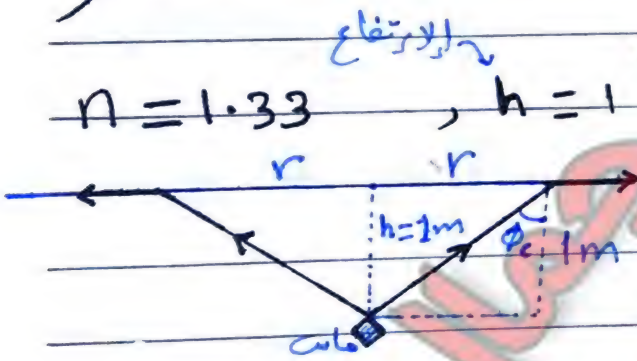 الارتفاع
n = 1.33 , h = 1
r r
h=1m ϕc 1m
ماسة